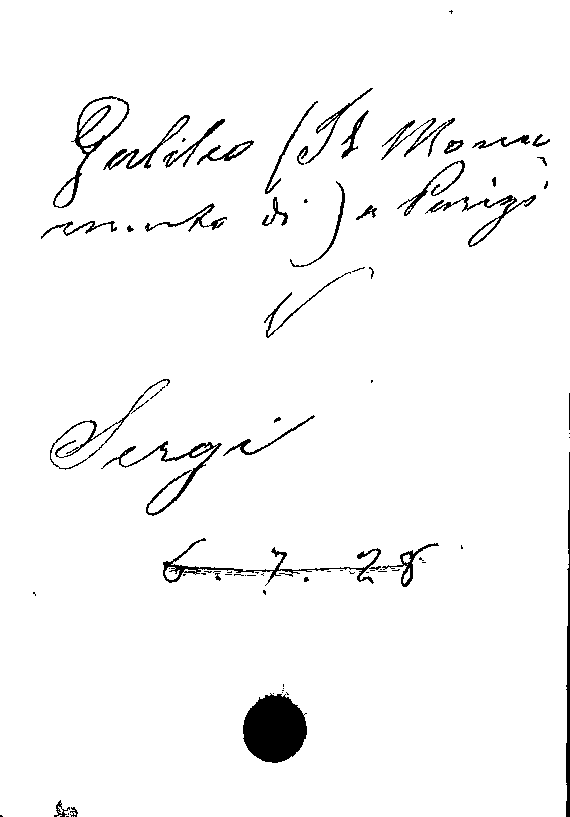 Galileo (Il Monu
mento di) a Parigi
V
Sergi
6. 7. 28